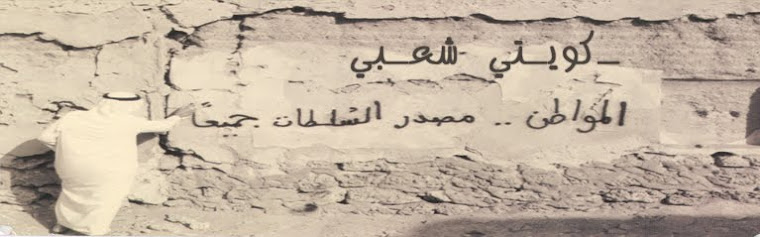 ـكويـتي شعـبي
المواطن .. مصدر السلطات جميعاً